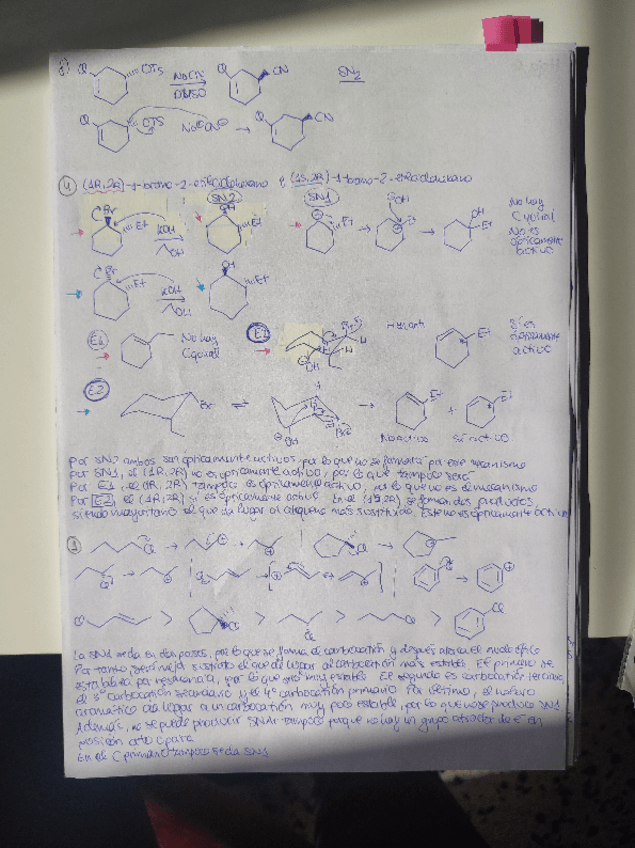 f) Cl OTS NaCN DMSO Cl CN SN2
Cl OTS Na⊕ CN⊖ → Cl CN
4 (1R,2R)-1-bromo-2-etilciclohexano y (1S,2R)-1-bromo-2-etilciclohexano
SN2 SN1
Br Et KOH OH OH Et ⊕ Et EtOH Et OH Et
No hay
C quiral
No es
ópticamente
activo
Br Et KOH OH OH Et
E1 No hay C quiral E2 H H OH Et Sí es
ópticamente
activo
E2 Br ⇌ OH Br → Et + Et
No activo Sí activo
Por SN2 ambos son ópticamente activos, por lo que no se formará por ese mecanismo
Por SN1, el (1R,2R) no es ópticamente activo, por lo que tampoco será
Por E1, el (1R,2R) tampoco es ópticamente activo, por lo que no es el mecanismo
Por E2, el (1R,2R) sí es ópticamente activo. En el (1S,2R) se forman dos productos,
siendo mayoritario el que da lugar al alqueno más sustituido. Este no es ópticamente activo
Cl → ⊕ → ⊕ Cl → ⊕
Cl → ⊕ Cl → [⊕ ↔ ⊕] Cl → ⊕
Cl > Cl > Cl > Cl > Cl
La SN1 se da en dos pasos, por lo que se forma el carbocatión y después ataca el nucleófilo
Por tanto, será mejor sustrato el que dé lugar al carbocatión más estable. El primero se
estabiliza por resonancia, por lo que será muy estable. El segundo es carbocatión terciario,
el 3º carbocatión secundario y el 4º carbocatión primario. Por último, el haluro
aromático da lugar a un carbocatión muy poco estable, por lo que no se produce SN1
Además, no se puede producir SNAr tampoco porque no hay un grupo atractor de e⁻ en
posición orto o para
En el C primario tampoco se da SN1